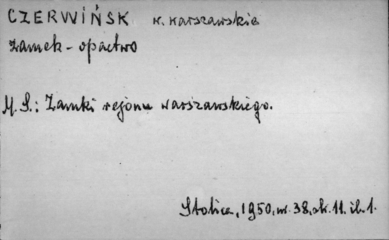 CZERWIŃSK w. warszawskie
zamek - opactwo
M. S.: Zamki rejonu warszawskiego.
Stolica, 1950, nr. 38, sk. 11. il. 1.